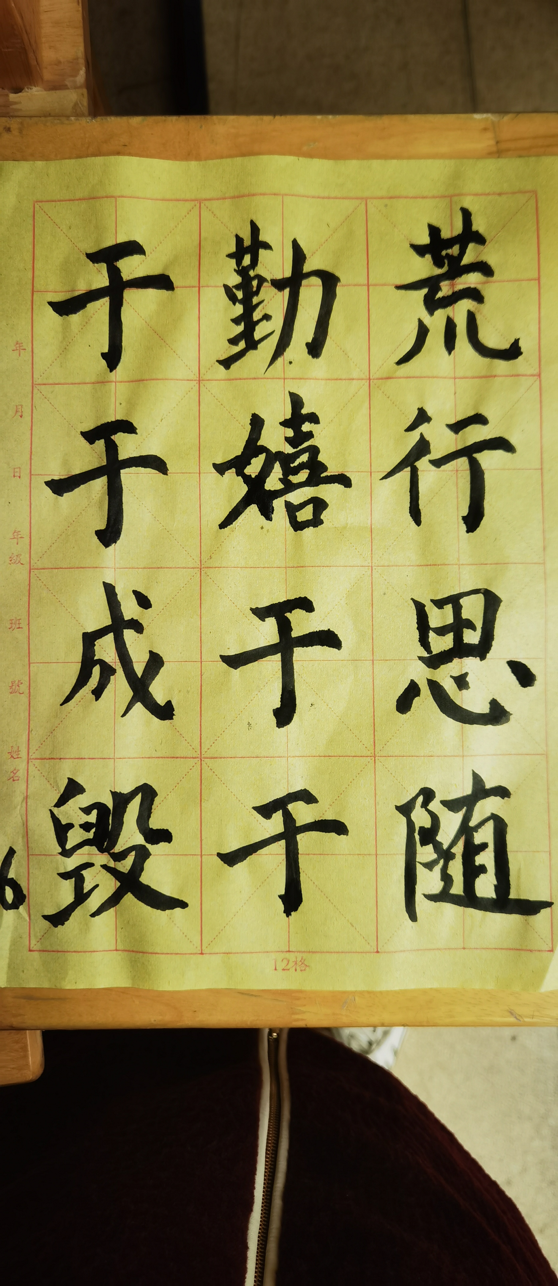 于勤荒
于嬉行
成于思
毁于随
年 月 日 年级 班 號 姓名
6
12格